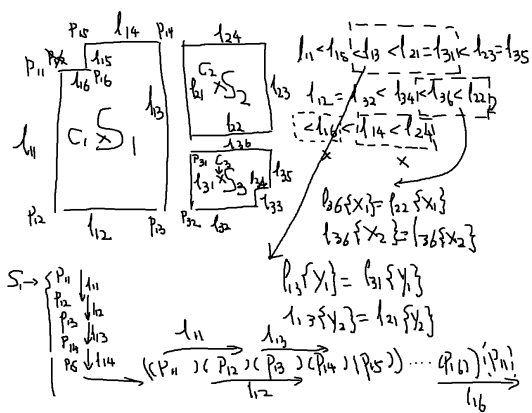 P15 l14 P14
P11 P12 l15
l16 P16
l11 C1 S1 l13
P12 l12 P13
l24
C2 S2
l21 l23
l22
l36
P31 C3
l31 S3 l34 l35
l33
P32 l32
l11 < l15 < l13 < l21 = l31 < l23 = l35
l12 = l32 < l34 < l36 < l22
< l16 < l14 < l24
x x
l36{x1} = l22{x1}
l36{x2} = l36{x2}
l13{y1} = l31{y1}
l13{y2} = l21{y2}
S1 → { P11 l11
P12 l12
P13 l13
P14 l14
P15
l11 l13
((P11)(P12)(P13)(P14)(P15)) ···· (P16)(P11)
l12 l16